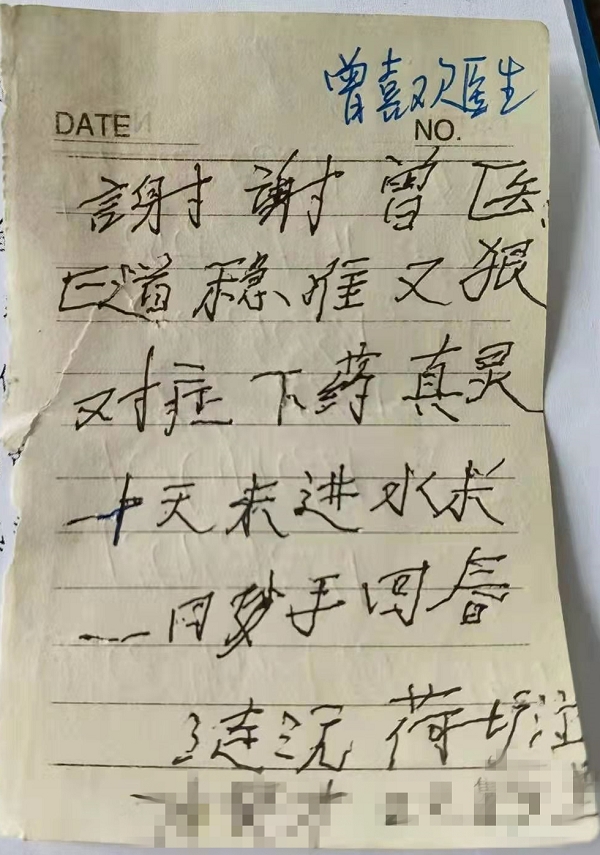 曾喜欢医生
DATE NO.
謝謝曾医
道稳准又狠
对症下药真灵
十天未进水米
一日妙手回春
连沅荷坊